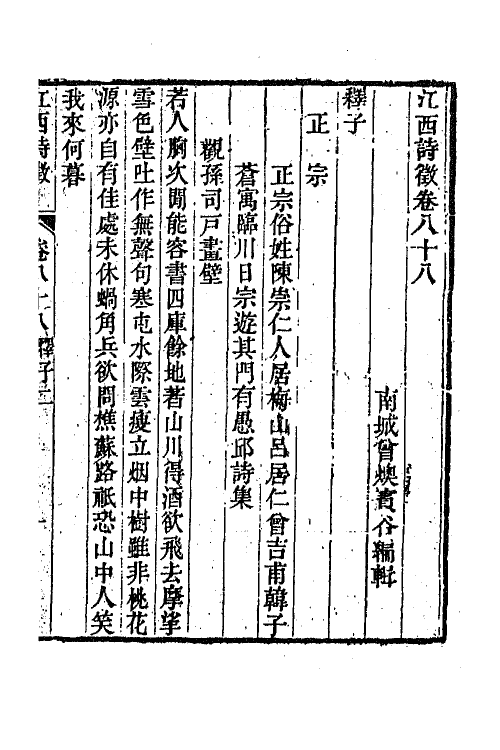 江西詩徵卷八十八
南城曾燠賓谷編輯
釋子
正宗
正宗俗姓陳崇仁人居梅山呂居仁曾吉甫韓子
蒼寓臨川日宗遊其門有愚邱詩集
觀孫司戸畫壁
若人胸次閒能容書四庫餘地著山川得酒欲飛去摩挲
雪色壁吐作無聲句寒屯水際雲瘦立烟中樹雖非桃花
源亦自有佳處未休蝸角兵欲問樵蘇路祇恐山中人笑
我來何暮
江西詩徵
卷八十八釋子